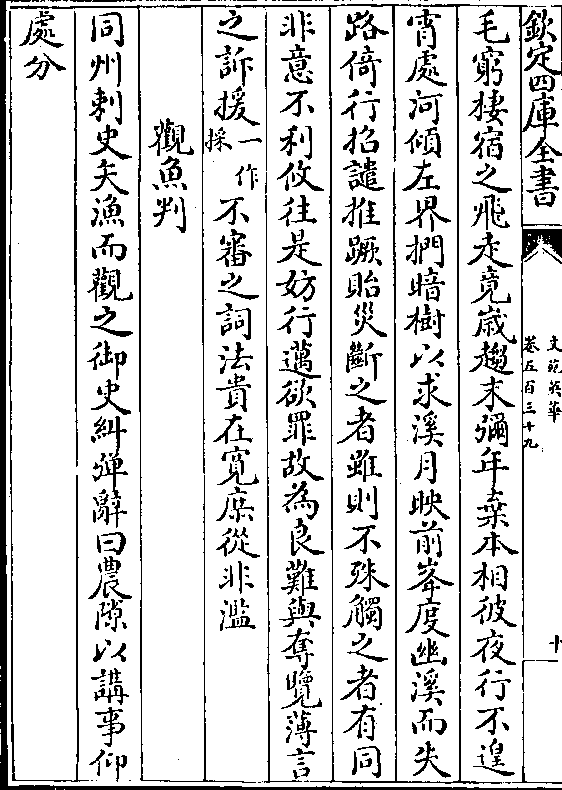 欽定四庫全書
文苑英華
卷五百三十九
十
毛窮棲宿之飛走竟歲趨末彌年棄本相彼夜行不遑
宵處河傾左界捫暗樹以求溪月映前峯度幽溪而失
路倚行招譴推蹶貽災斷之者雖則不殊觸之者有同
非意不利攸往是妨行邁欲罪故為良難與奪覽薄言
之訴援一作採不審之詞法貴在寛庶從非濫
觀魚判
同州刺史矢漁而觀之御史糾彈辭曰農隙以講事仰
處分